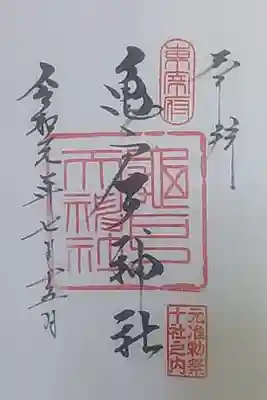 奉拝
東宰府
亀戸天神社
龜戸
天神社
元准勅祭
十社之内
令和元年七月五日